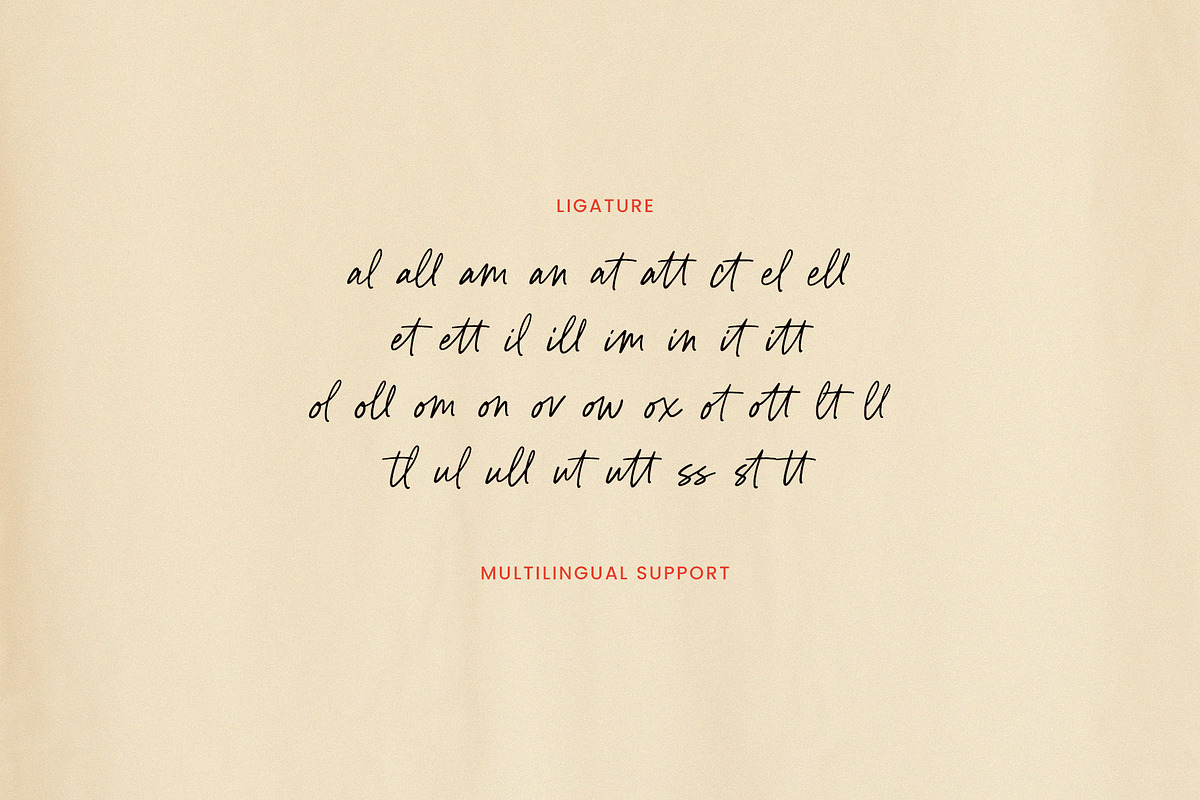 LIGATURE
al all am an at att ct el ell
et ett il ill im in it itt
ol oll om on ov ow ox ot ott lt ll
tl ul ull ut utt ss st tt
MULTILINGUAL SUPPORT